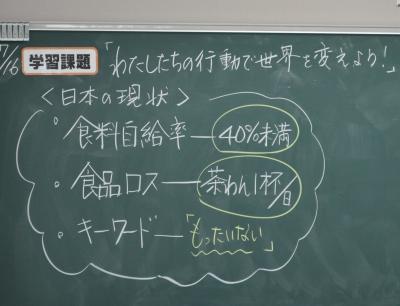 7/16 学習課題 「わたしたちの行動で世界を変えよう!」
<日本の現状>
・食料自給率―40%未満
・食品ロス―茶わん1杯/日
・キーワード―「もったいない」